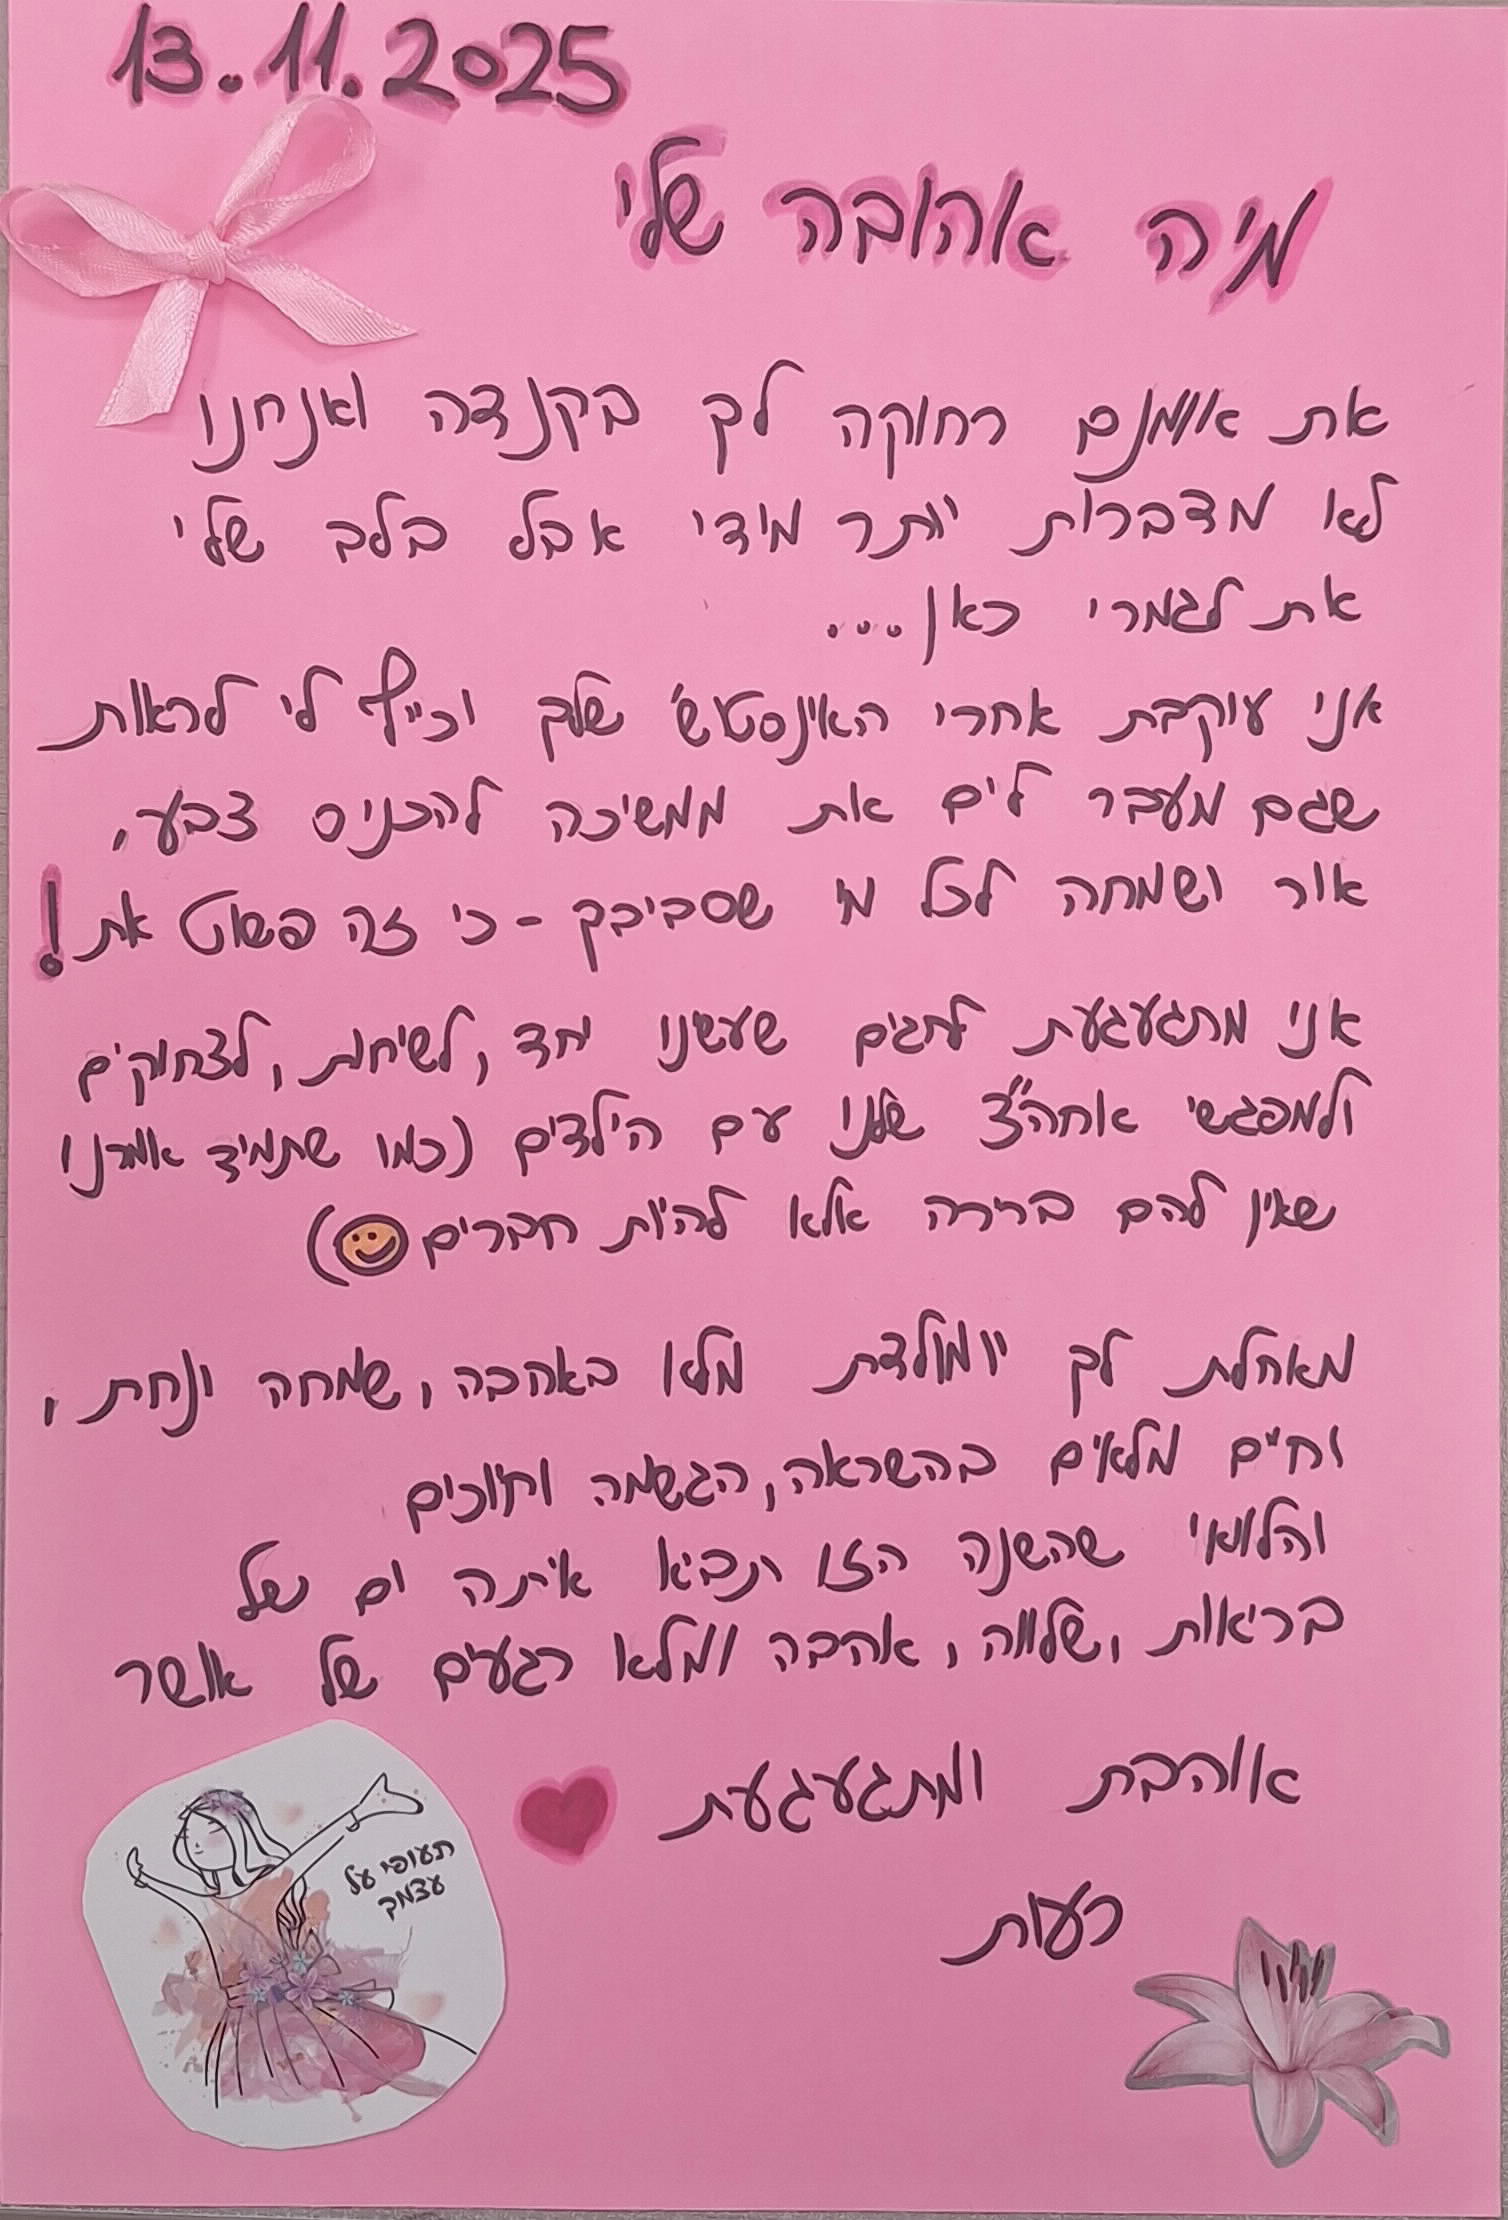 13.11.2025
מיה אהובה שלי
את אומנם רחוקה לך בקנדה ואנחנו
לא מדברות יותר מידי אבל בלב שלי
את לגמרי כאן...
אני עוקבת אחרי האינסטוש' שלך וכייף לי לראות
שגם מעבר לים את ממשיכה להכניס צבע,
אור ושמחה לכל מי שסביבך - כי זה פשוט את!
אני מתגעגעת לחגים שעשינו יחד, לשיחות, לצחוקים
ולמפגשי אחה"צ שלנו עם הילדים (כמו שתמיד אמרנו
שאין להם ברירה אלא להיות חברים🙂)
מאחלת לך יומולדת מלא באהבה, שמחה ונחת,
וחיים מלאים בהשראה, הגשמה וחיוכים
והלוואי שהשנה הזו תביא איתה ים של
בריאות, שלווה, אהבה ומלא רגעים של אושר
אוהבת ומתגעגעת ❤
רעות
תעופי על
עצמך